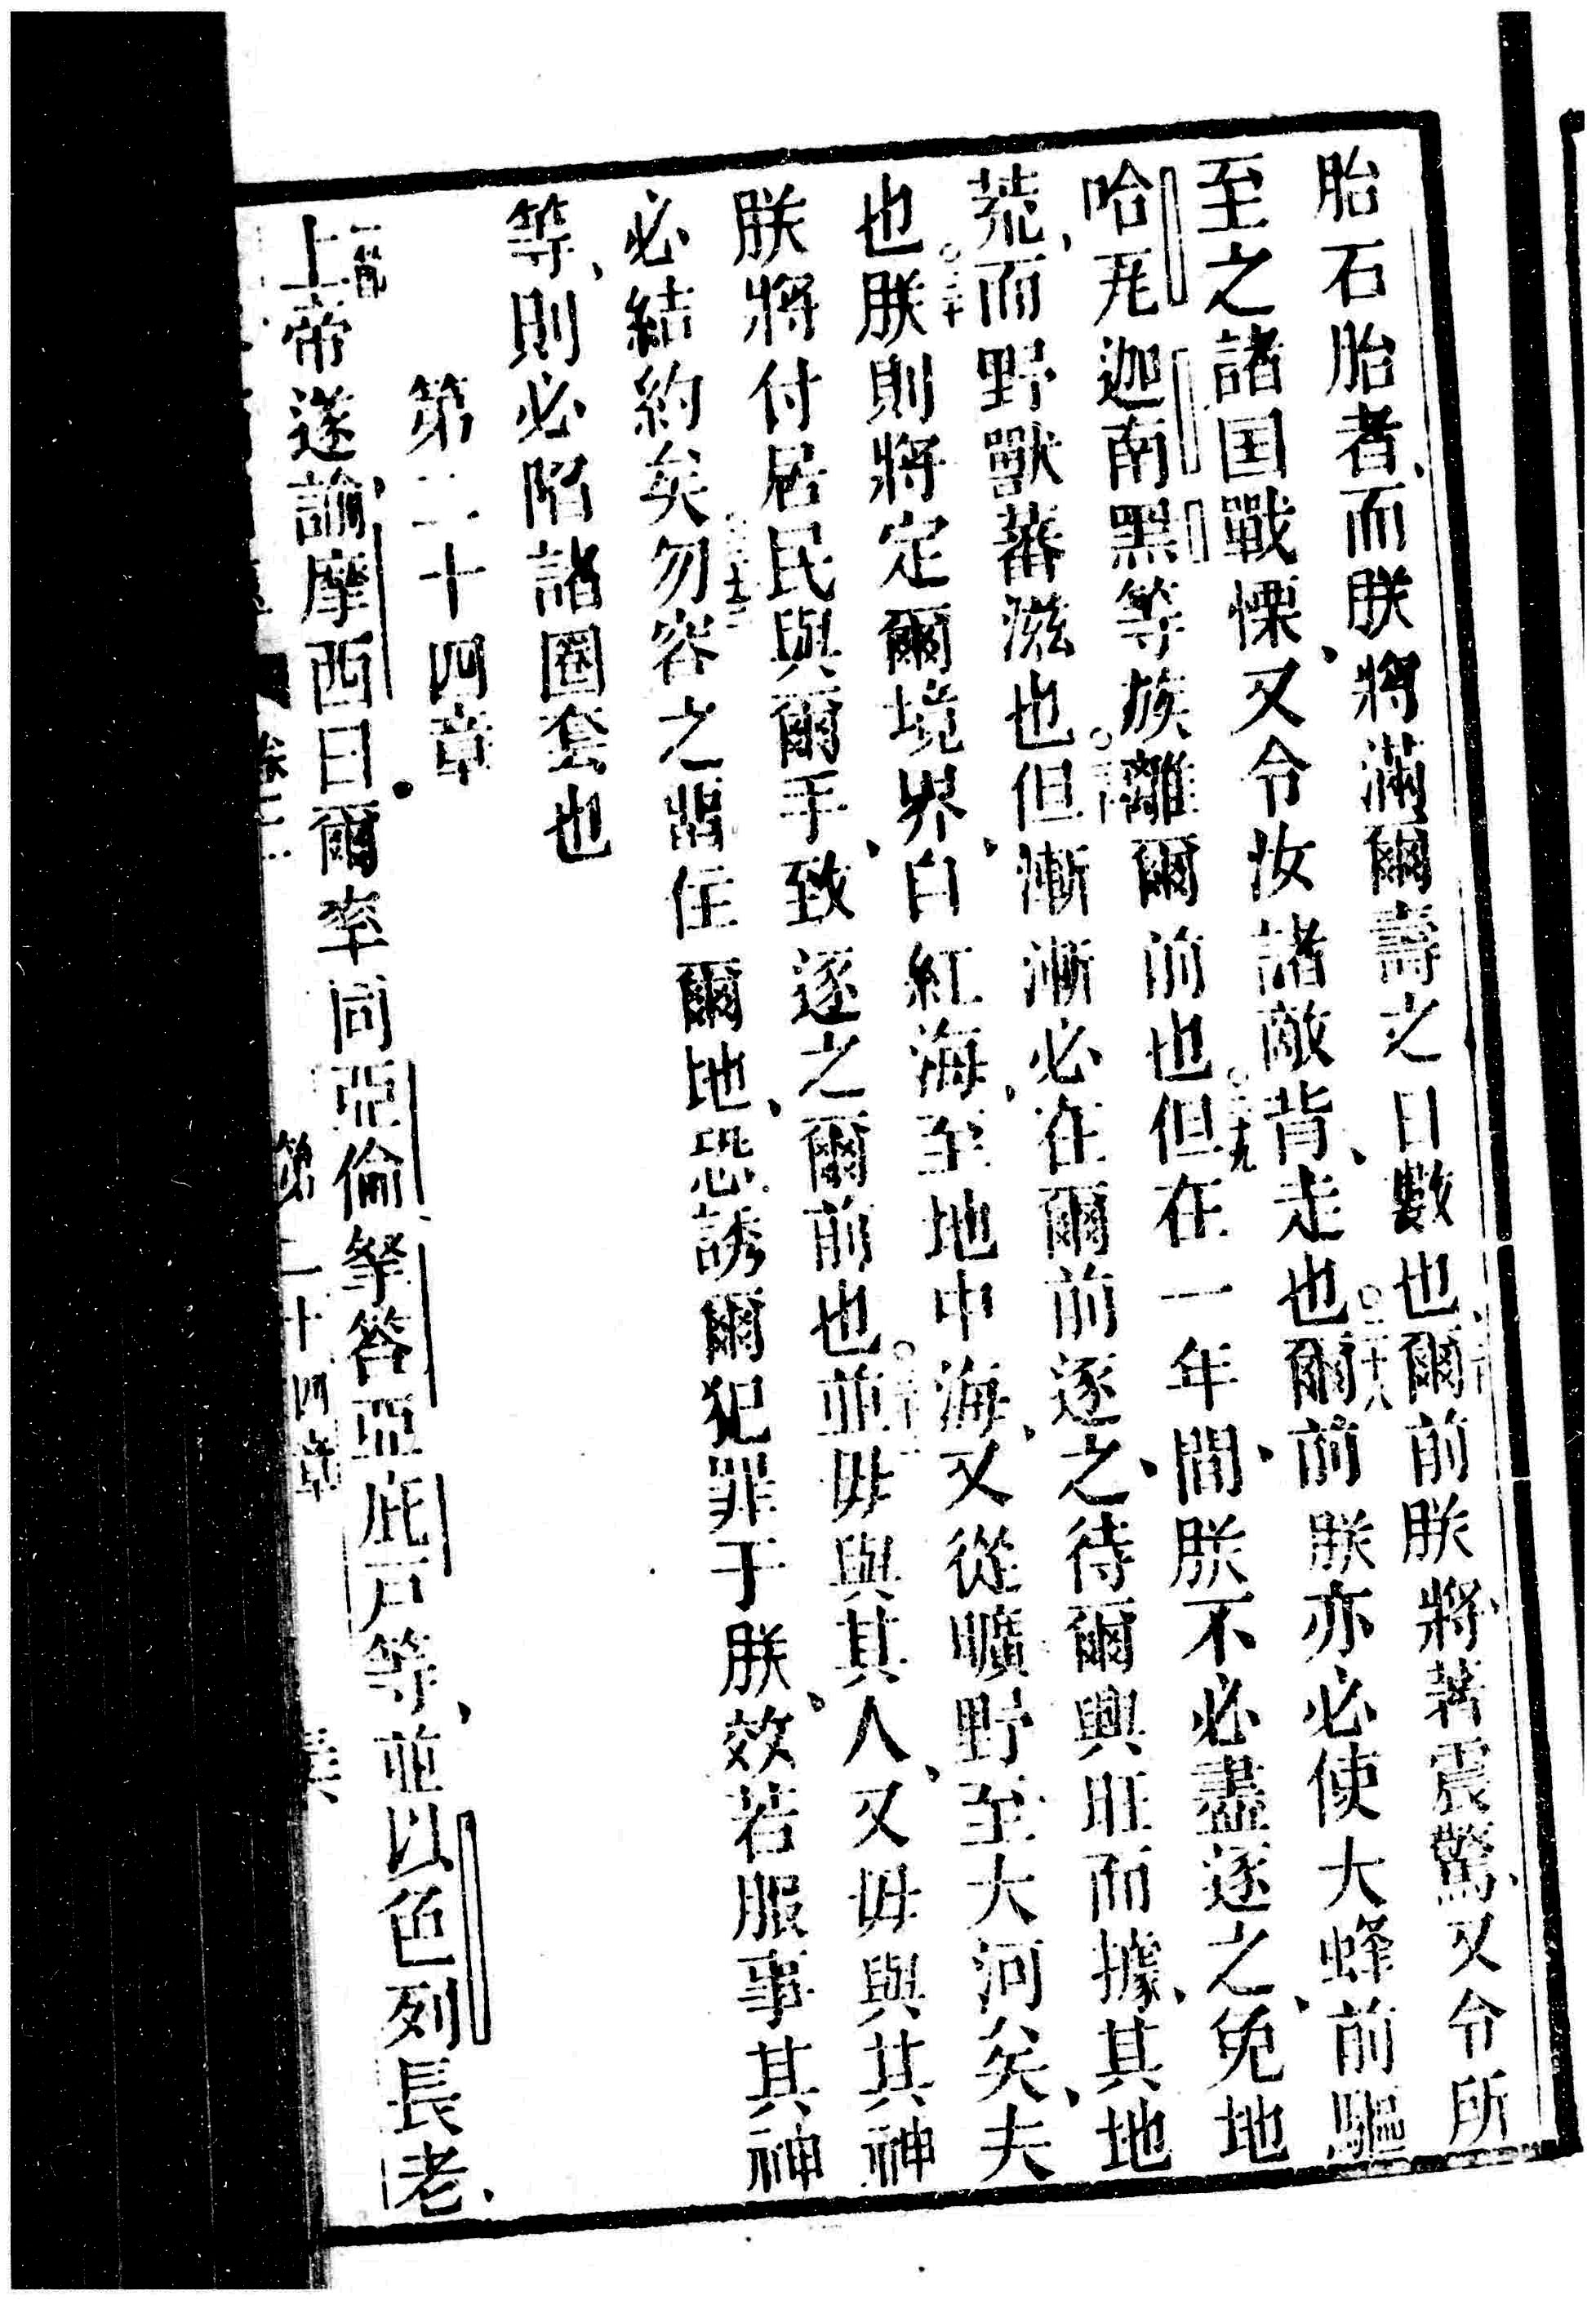 胎石胎者、而朕將滿爾壽之日數也、爾前朕將著震驚、又令所
至之諸国戰慄、又令汝諸敵背、走也○二十八爾前朕亦必使大蜂前驅
哈𠀾迦南黑等族離爾前也○二十九但在一年間、朕不必盡逐之、免地
荒、而野獸蕃滋也○三十但漸漸必在爾前逐之、待爾興旺而據、其地
也○三十朕則將定爾境界、自紅海、至地中海、又從曠野至大河矣、夫
朕將付居民與爾手、致逐之爾前也○三十並毋與其人、又毋與其神
必結約矣○三十三勿容之畱住爾地、恐誘爾犯罪于朕、效若服事其神
等、則必陷諸圈套也
第二十四章
一節上帝遂諭、摩西曰、爾率同亞倫拏答亞庇戸等、並以色列長老、
卷二 第二十四章